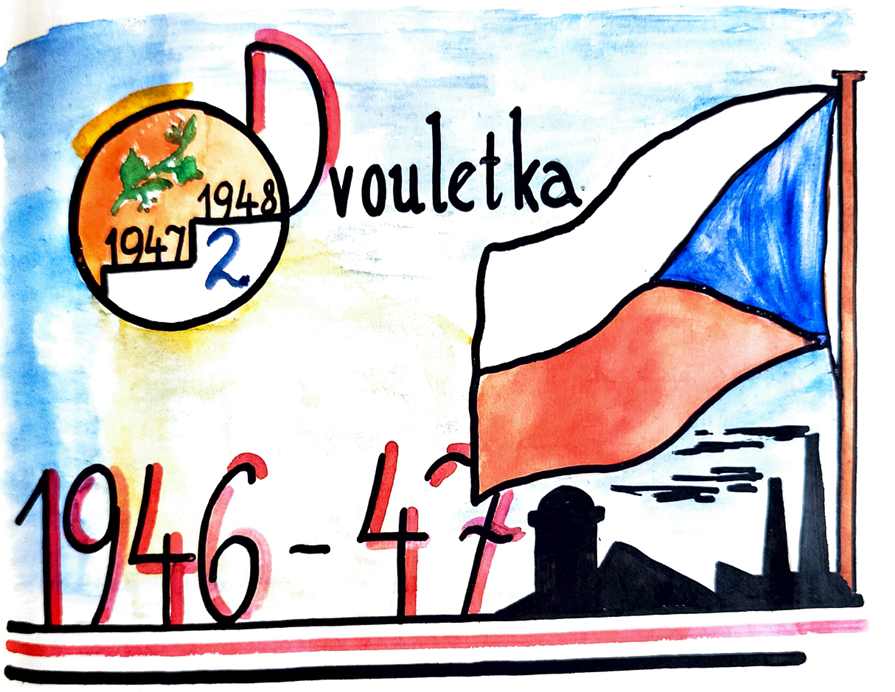 Dvouletka
1948
1947
2
1946-47